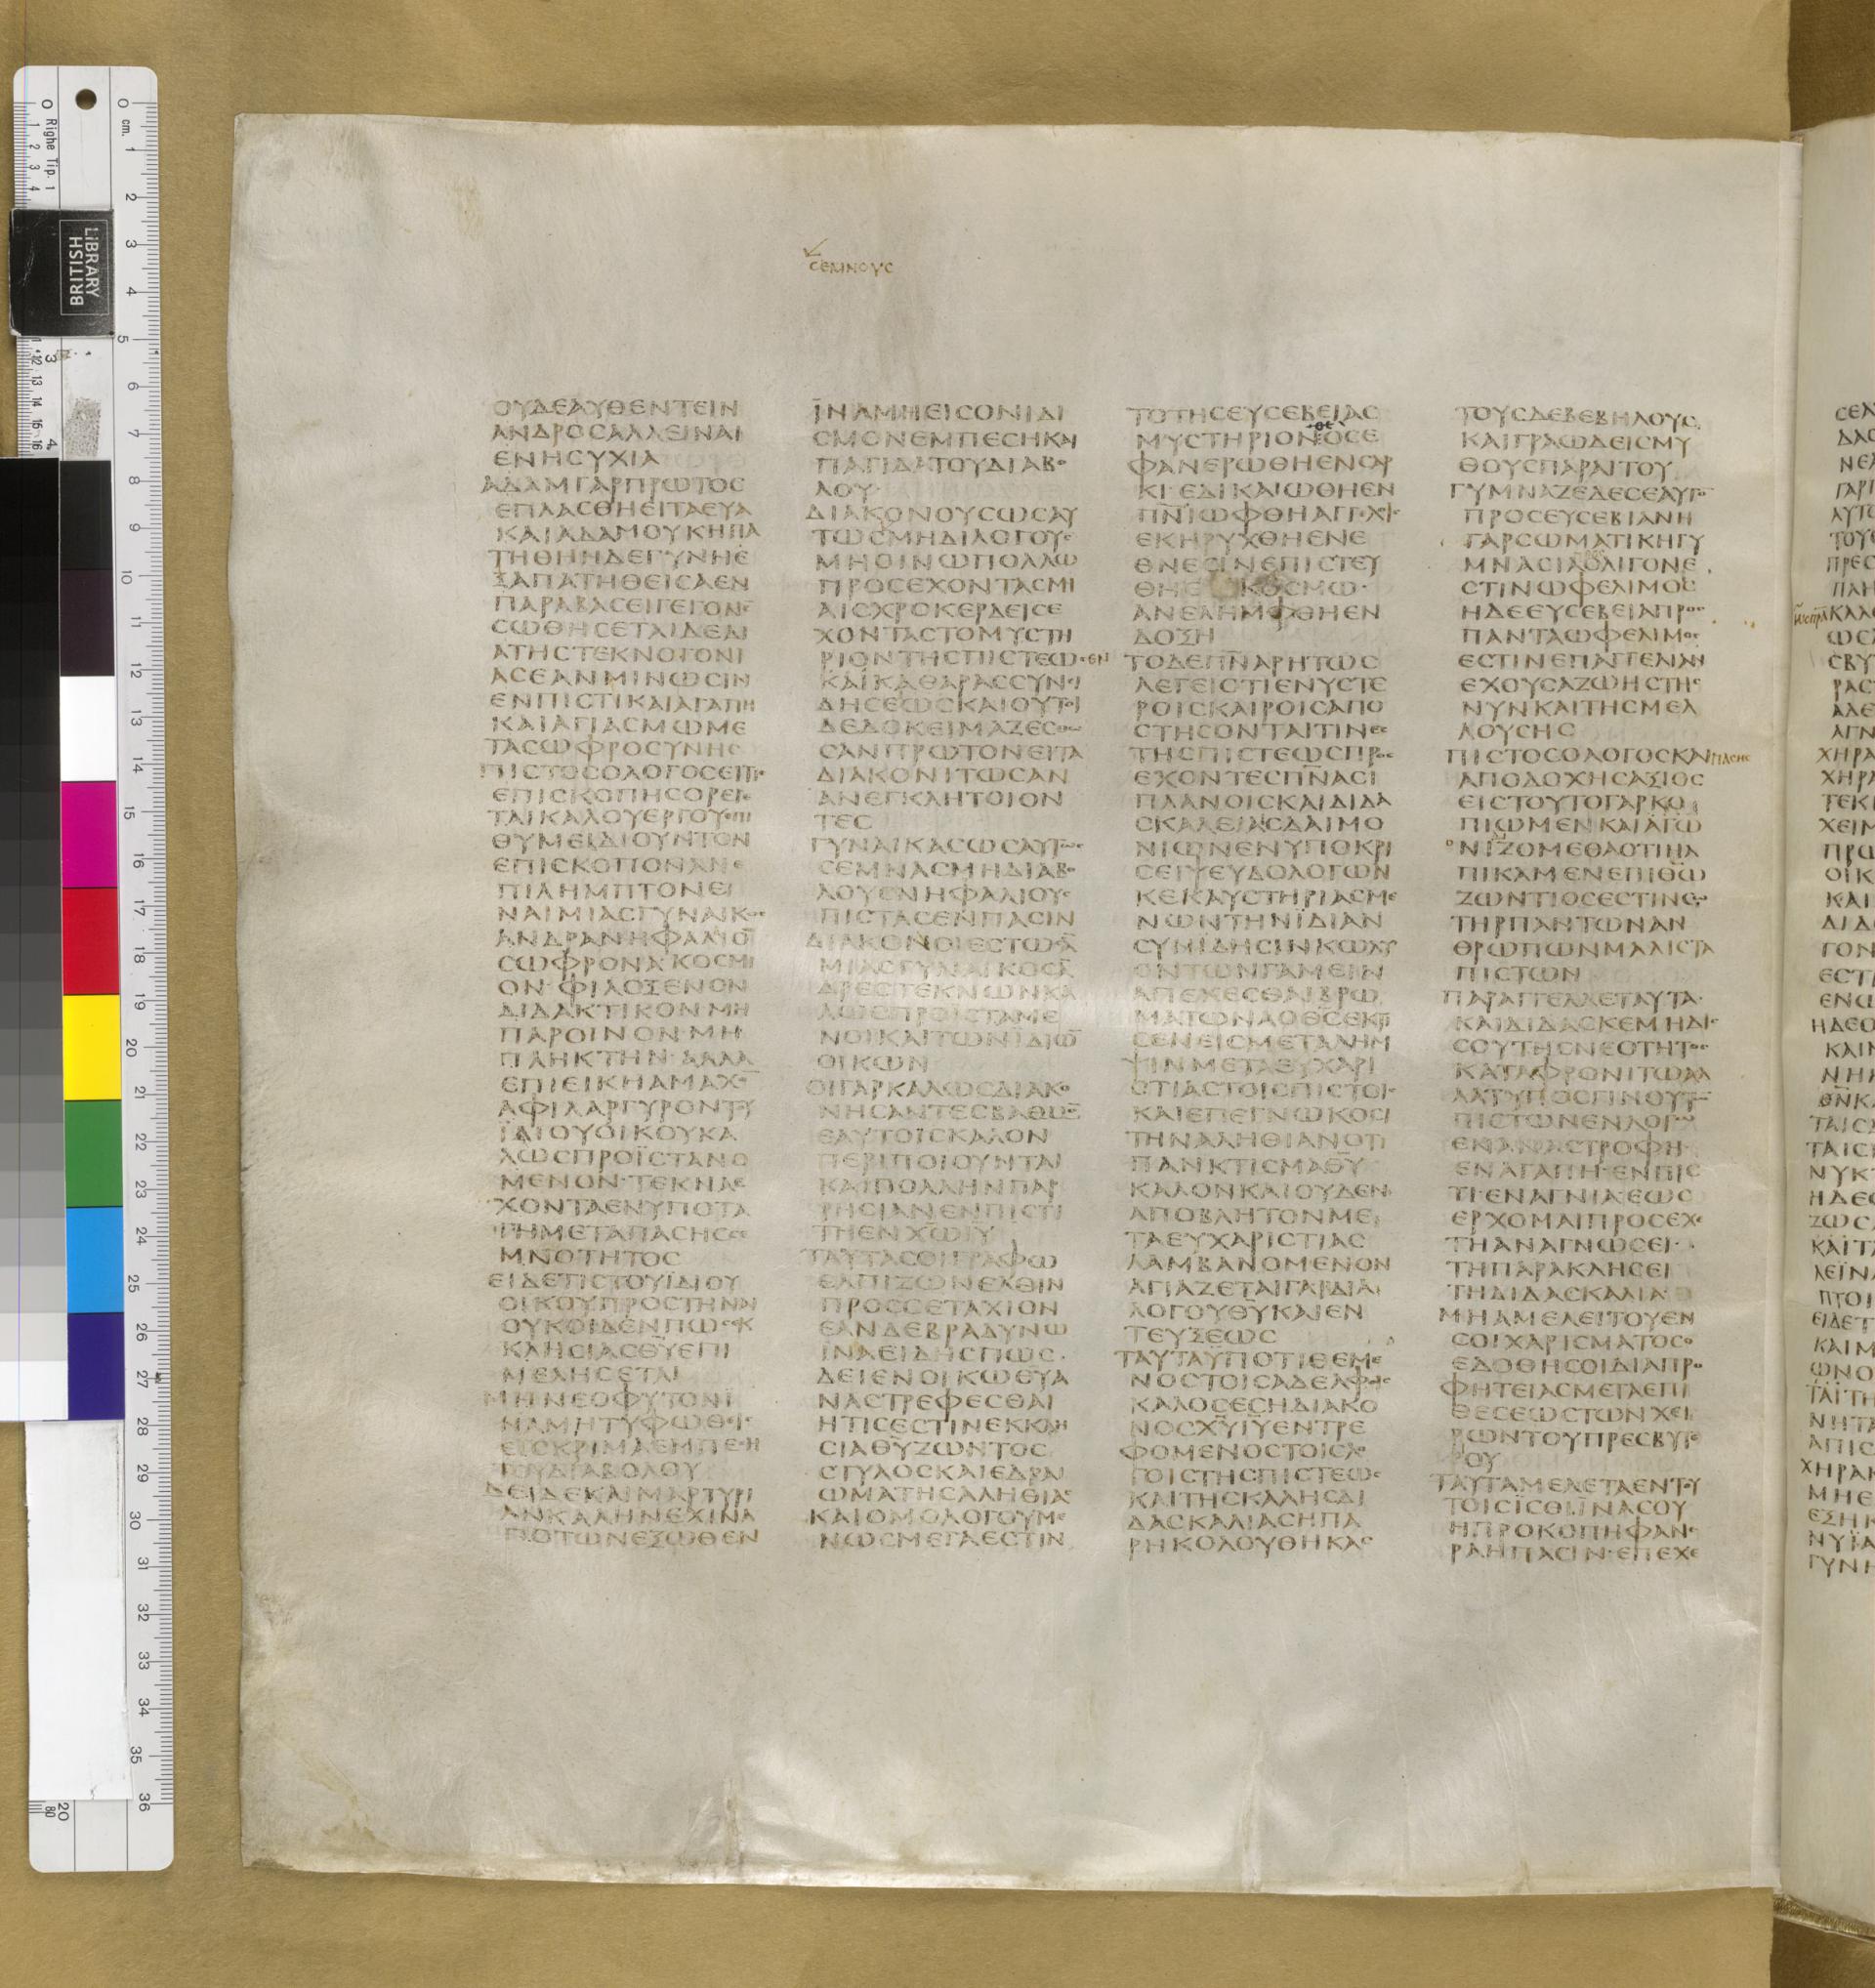 ϹΕΜΝΟΥϹ
ΟΥΔΕΑΥΘΕΝΤΕΙΝ
ΑΝΔΡΟϹΑΛΛΕΙΝΑΙ
ΕΝΗϹΥΧΙΑ
ΑΔΑΜΓΑΡΠΡΩΤΟϹ
ΕΠΛΑϹΘΗΕΙΤΑΕΥΑ
ΚΑΙΑΔΑΜΟΥΚΗΠΑ
ΤΗΘΗΗΔΕΓΥΝΗΕ
ΞΑΠΑΤΗΘΕΙϹΑΕΝ
ΠΑΡΑΒΑϹΕΙΓΕΓΟΝΕ
ϹΩΘΗϹΕΤΑΙΔΕΔΙ
ΑΤΗϹΤΕΚΝΟΓΟΝΙ
ΑϹΕΑΝΜΙΝΩϹΙΝ
ΕΝΠΙϹΤΙΚΑΙΑΓΑΠΗ
ΚΑΙΑΓΙΑϹΜΩΜΕ
ΤΑϹΩΦΡΟϹΥΝΗϹ
ΠΙϹΤΟϹΟΛΟΓΟϹΕΙΤΙϹ
ΕΠΙϹΚΟΠΗϹΟΡΕΓΕ
ΤΑΙΚΑΛΟΥΕΡΓΟΥΕΠΙ
ΘΥΜΕΙΔΙΟΥΝΤΟΝ
ΕΠΙϹΚΟΠΟΝΑΝΕ
ΠΙΛΗΜΠΤΟΝΕΙ
ΝΑΙΜΙΑϹΓΥΝΑΙΚΟϹ
ΑΝΔΡΑΝΗΦΑΛΙΟ̅
ϹΩΦΡΟΝΑΚΟϹΜΙ
ΟΝ·ΦΙΛΟΞΕΝΟΝ
ΔΙΔΑΚΤΙΚΟΝ·ΜΗ
ΠΑΡΟΙΝΟΝ·ΜΗ
ΠΛΗΚΤΗΝ·ΑΛΛΑ
ΕΠΙΕΙΚΗΑΜΑΧΟ̅
ΑΦΙΛΑΡΓΥΡΟΝΤΟΥ
ΪΔΙΟΥΟΙΚΟΥΚΑ
ΛΩϹΠΡΟΪϹΤΑΝΟ
ΜΕΝΟΝ·ΤΕΚΝΑΕ
ΧΟΝΤΑΕΝΥΠΟΤΑ
ΓΗΜΕΤΑΠΑϹΗϹϹΕ
ΜΝΟΤΗΤΟϹ
ΕΙΔΕΤΙϹΤΟΥΪΔΙΟΥ
ΟΙΚΟΥΠΡΟϹΤΗΝΑΙ
ΟΥΚΟΙΔΕΝΠΩϹΕΚ
ΚΛΗϹΙΑϹΘ̅Υ̅ΕΠΙ
ΜΕΛΗϹΕΤΑΙ
ΜΗΝΕΟΦΥΤΟΝΙ
ΝΑΜΗΤΥΦΩΘΕΙϹ
ΕΙϹΚΡΙΜΑΕΜΠΕϹΗ
ΤΟΥΔΙΑΒΟΛΟΥ
ΔΕΙΔΕΚΑΙΜΑΡΤΥΡΙ
ΑΝΚΑΛΗΝΕΧΙΝΑ
ΠΟΤΩΝΕΞΩΘΕΝ
ΪΝΑΜΗΕΙϹΟΝΙΔΙ
ϹΜΟΝΕΜΠΕϹΗΚΑΙ
ΠΑΓΙΔΑΤΟΥΔΙΑΒΟ
ΛΟΥ
ΔΙΑΚΟΝΟΥϹΩϹΑΥ
ΤΩϹΜΗΔΙΛΟΓΟΥϹ
ΜΗΟΙΝΩΠΟΛΛΩ
ΠΡΟϹΕΧΟΝΤΑϹΜΙ
ΑΙϹΧΡΟΚΕΡΔΕΙϹΕ
ΧΟΝΤΑϹΤΟΜΥϹΤΗ
ΡΙΟΝΤΗϹΠΙϹΤΕΩϹΕΝ
ΚΑΙΚΑΘΑΡΑϹϹΥΝΕΙ
ΔΗϹΕΩϹΚΑΙΟΥΤΟΙ
ΔΕΔΟΚΕΙΜΑΖΕϹΘΩ
ϹΑΝΠΡΩΤΟΝΕΙΤΑ
ΔΙΑΚΟΝΙΤΩϹΑΝ
ΑΝΕΓΚΛΗΤΟΙΟΝ
ΤΕϹ
ΓΥΝΑΙΚΑϹΩϹΑΥΤΩϹ
ϹΕΜΝΑϹΜΗΔΙΑΒΟ
ΛΟΥϹΝΗΦΑΛΙΟΥϹ
ΠΙϹΤΑϹΕΝΠΑϹΙΝ
ΔΙΑΚΟΝΟΙΕϹΤΩϹΑ̅
ΜΙΑϹΓΥΝΑΙΚΟϹΑ̅
ΔΡΕϹΤΕΚΝΩΝΚΑ
ΛΩϹΠΡΟΙϹΤΑΜΕ
ΝΟΙΚΑΙΤΩΝΪΔΙΩ̅
ΟΙΚΩΝ
ΟΙΓΑΡΚΑΛΩϹΔΙΑΚΟ
ΝΗϹΑΝΤΕϹΒΑΘΜΟ̅
ΕΑΥΤΟΙϹΚΑΛΟΝ
ΠΕΡΙΠΟΙΟΥΝΤΑΙ
ΚΑΙΠΟΛΛΗΝΠΑΡ
ΡΗϹΙΑΝΕΝΠΙϹΤΙ
ΤΗΕΝΧ̅Ω̅Ι̅Υ̅
ΤΑΥΤΑϹΟΙΓΡΑΦΩ
ΕΛΠΙΖΩΝΕΛΘΙΝ
ΠΡΟϹϹΕΤΑΧΙΟΝ
ΕΑΝΔΕΒΡΑΔΥΝΩ
ΪΝΑΕΙΔΗϹΠΩϹ
ΔΕΙΕΝΟΙΚΩΘΥΑ
ΝΑϹΤΡΕΦΕϹΘΑΙ
ΗΤΙϹΕϹΤΙΝΕΚΚΛΗ
ϹΙΑΘ̅Υ̅ΖΩΝΤΟϹ
ϹΤΥΛΟϹΚΑΙΕΔΡΑΙ
ΩΜΑΤΗϹΑΛΗΘΙΑϹ
ΚΑΙΟΜΟΛΟΓΟΥΜΕ
ΝΩϹΜΕΓΑΕϹΤΙΝ
ΤΟΤΗϹΕΥϹΕΒΕΙΑϹ
ΜΥϹΤΗΡΙΟΝΟϹΕ
ΦΑΝΕΡΩΘΗΕΝϹΑΡ
ΚΙ·ΕΔΙΚΑΙΩΘΗΕΝ
Π̅Ν̅Ι̅ΩΦΘΗΑΓΓΕΛΟΙϹ
ΕΚΗΡΥΧΘΗΕΝΕ
ΘΝΕϹΙΝΕΠΙϹΤΕΥ
ΘΗΕΝΚΟϹΜΩ·
ΑΝΕΛΗΜΦΘΗΕΝ
ΔΟΞΗ
ΤΟΔΕΠ̅Ν̅ΑΡΗΤΩϹ
ΛΕΓΕΙΟΤΙΕΝΥϹΤΕ
ΡΟΙϹΚΑΙΡΟΙϹΑΠΟ
ϹΤΗϹΟΝΤΑΙΤΙΝΕϹ
ΤΗϹΠΙϹΤΕΩϹΠΡΟϹ
ΕΧΟΝΤΕϹΠ̅Ν̅ΑϹΙ
ΠΛΑΝΟΙϹΚΑΙΔΙΔΑ
ϹΚΑΛΕΙΑϹΔΑΙΜΟ
ΝΙΩΝΕΝΥΠΟΚΡΙ
ϹΕΙΨΕΥΔΟΛΟΓΩΝ
ΚΕΚΑΥϹΤΗΡΙΑϹΜΕ
ΝΩΝΤΗΝΪΔΙΑΝ
ϹΥΝΙΔΗϹΙΝΚΩΛΥ
ΟΝΤΩΝΓΑΜΕΙΝ
ΑΠΕΧΕϹΘΑΙΒΡΩ
ΜΑΤΩΝΑΟΘ̅Ϲ̅ΕΚΤΙ
ϹΕΝΕΙϹΜΕΤΑΛΗΜ
ΨΙΝΜΕΤΑΕΥΧΑΡΙ
ϹΤΙΑϹΤΟΙϹΠΙϹΤΟΙϹ
ΚΑΙΕΠΕΓΝΩΚΟϹΙ
ΤΗΝΑΛΗΘΙΑΝΟΤΙ
ΠΑΝΚΤΙϹΜΑΘ̅Υ̅
ΚΑΛΟΝΚΑΙΟΥΔΕΝ
ΑΠΟΒΛΗΤΟΝΜΕ
ΤΑΕΥΧΑΡΙϹΤΙΑϹ
ΛΑΜΒΑΝΟΜΕΝΟΝ
ΑΓΙΑΖΕΤΑΙΓΑΡΔΙΑ
ΛΟΓΟΥΘ̅Υ̅ΚΑΙΕΝ
ΤΕΥΞΕΩϹ
ΤΑΥΤΑΫΠΟΤΙΘΕΜΕ
ΝΟϹΤΟΙϹΑΔΕΛΦΟΙϹ
ΚΑΛΟϹΕϹΗΔΙΑΚΟ
ΝΟϹΧ̅Υ̅Ι̅Υ̅ΕΝΤΡΕ
ΦΟΜΕΝΟϹΤΟΙϹΛΟ
ΓΟΙϹΤΗϹΠΙϹΤΕΩϹ
ΚΑΙΤΗϹΚΑΛΗϹΔΙ
ΔΑϹΚΑΛΙΑϹΗΠΑ
ΡΗΚΟΛΟΥΘΗΚΑϹ
ΤΟΥϹΔΕΒΕΒΗΛΟΥϹ
ΚΑΙΓΡΑΩΔΕΙϹΜΥ
ΘΟΥϹΠΑΡΑΙΤΟΥ
ΓΥΜΝΑΖΕΔΕϹΕΑΥΤΟ̅
ΠΡΟϹΕΥϹΕΒΙΑΝΗ
ΓΑΡϹΩΜΑΤΙΚΗΓΥ
ΜΝΑϹΙΑΟΛΙΓΟΝΕ
ϹΤΙΝΩΦΕΛΙΜΟϹ
ΗΔΕΕΥϹΕΒΕΙΑΠΡΟϹ
ΠΑΝΤΑΩΦΕΛΙΜΟϹ
ΕϹΤΙΝΕΠΑΓΓΕΛΙΑΝ
ΕΧΟΥϹΑΖΩΗϹΤΗϹ
ΝΥΝΚΑΙΤΗϹΜΕΛ
ΛΟΥϹΗϹ
ΠΙϹΤΟϹΟΛΟΓΟϹΚΑΙΠΑϹΗϹ
ΑΠΟΔΟΧΗϹΑΞΙΟϹ
ΕΙϹΤΟΥΤΟΓΑΡΚΟ
ΠΙΩΜΕΝΚΑΙΑΓΩ
ΝΙΖΟΜΕΘΑΟΤΙΗΛ
ΠΙΚΑΜΕΝΕΠΙΘΩ
ΖΩΝΤΙΟϹΕϹΤΙΝϹΩ
ΤΗΡΠΑΝΤΩΝΑΝ
ΘΡΩΠΩΝΜΑΛΙϹΤΑ
ΠΙϹΤΩΝ
ΠΑΡΑΓΓΕΛΛΕΤΑΥΤΑ·
ΚΑΙΔΙΔΑϹΚΕΜΗΔΙϹ
ϹΟΥΤΗϹΝΕΟΤΗΤΟϹ
ΚΑΤΑΦΡΟΝΙΤΩΑΛ
ΛΑΤΥΠΟϹΓΙΝΟΥΤΩ̅
ΠΙϹΤΩΝΕΝΛΟΓΩ
ΕΝΑΝΑϹΤΡΟΦΗ·
ΕΝΑΓΑΠΗ·ΕΝΠΙϹ
ΤΙ·ΕΝΑΓΝΙΑ·ΕΩϹ
ΕΡΧΟΜΑΙΠΡΟϹΕΧΕ
ΤΗΑΝΑΓΝΩϹΕΙ·
ΤΗΠΑΡΑΚΛΗϹΕΙ
ΤΗΔΙΔΑϹΚΑΛΙΑ
ΜΗΑΜΕΛΕΙΤΟΥΕΝ
ϹΟΙΧΑΡΙϹΜΑΤΟϹΟ
ΕΔΟΘΗϹΟΙΔΙΑΠΡΟ
ΦΗΤΕΙΑϹΜΕΤΑΕΠΙ
ΘΕϹΕΩϹΤΩΝΧΕΙ
ΡΩΝΤΟΥΠΡΕϹΒΥΤΕ
ΡΟΥ
ΤΑΥΤΑΜΕΛΕΤΑΕΝΤΟΥ
ΤΟΙϹΪϹΘΙΪΝΑϹΟΥ
ΗΠΡΟΚΟΠΗΦΑΝΕ
ΡΑΗΠΑϹΙΝ·ΕΠΕΧΕ